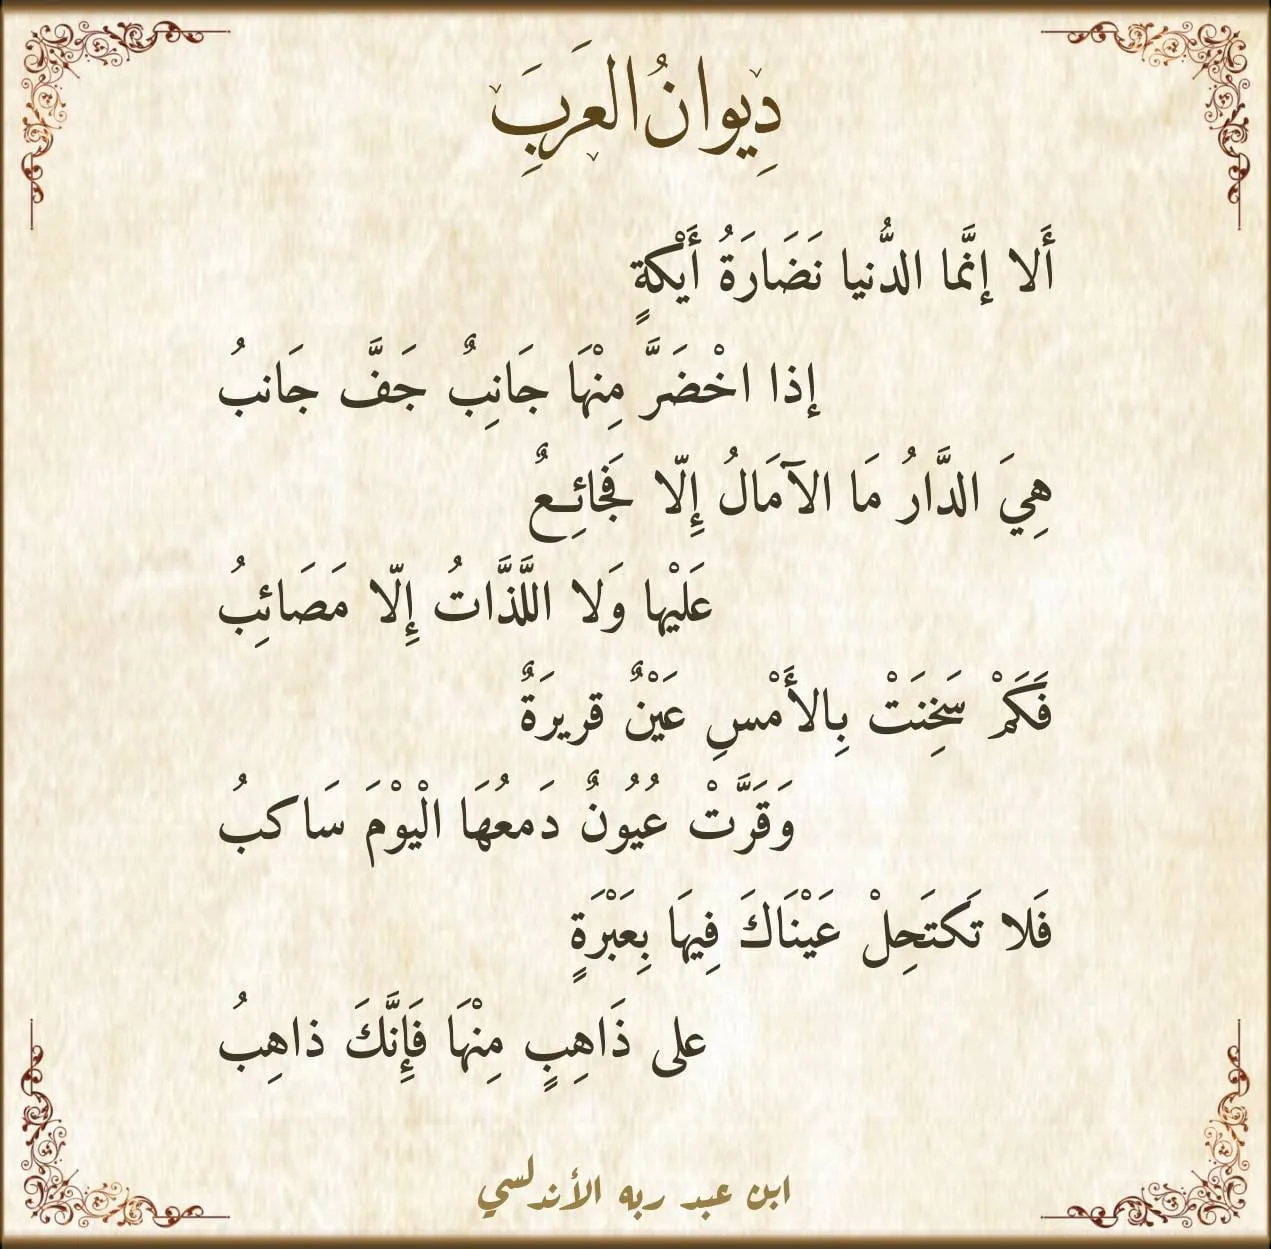 دِيوانُ العَرَبِ
أَلا إنَّما الدُّنيا نَضَارَةُ أَيْكةٍ
إذا اخْضَرَّ مِنْهَا جَانِبٌ جَفَّ جَانبُ
هِيَ الدَّارُ مَا الآمَالُ إِلّا فَجَائِعٌ
عَلَيْها وَلا اللَّذَّاتُ إِلّا مَصَائِبُ
فَكَمْ سَخِنَتْ بِالأَمْسِ عَيْنٌ قريرَةٌ
وَقَرَّتْ عُيُونٌ دَمعُهَا الْيوْمَ سَاكبُ
فَلا تَكتَحِلْ عَيْنَاكَ فِيهَا بِعَبْرَةٍ
على ذَاهِبٍ مِنْهَا فَإِنَّكَ ذاهِبُ
ابن عبد ربه الأندلسي